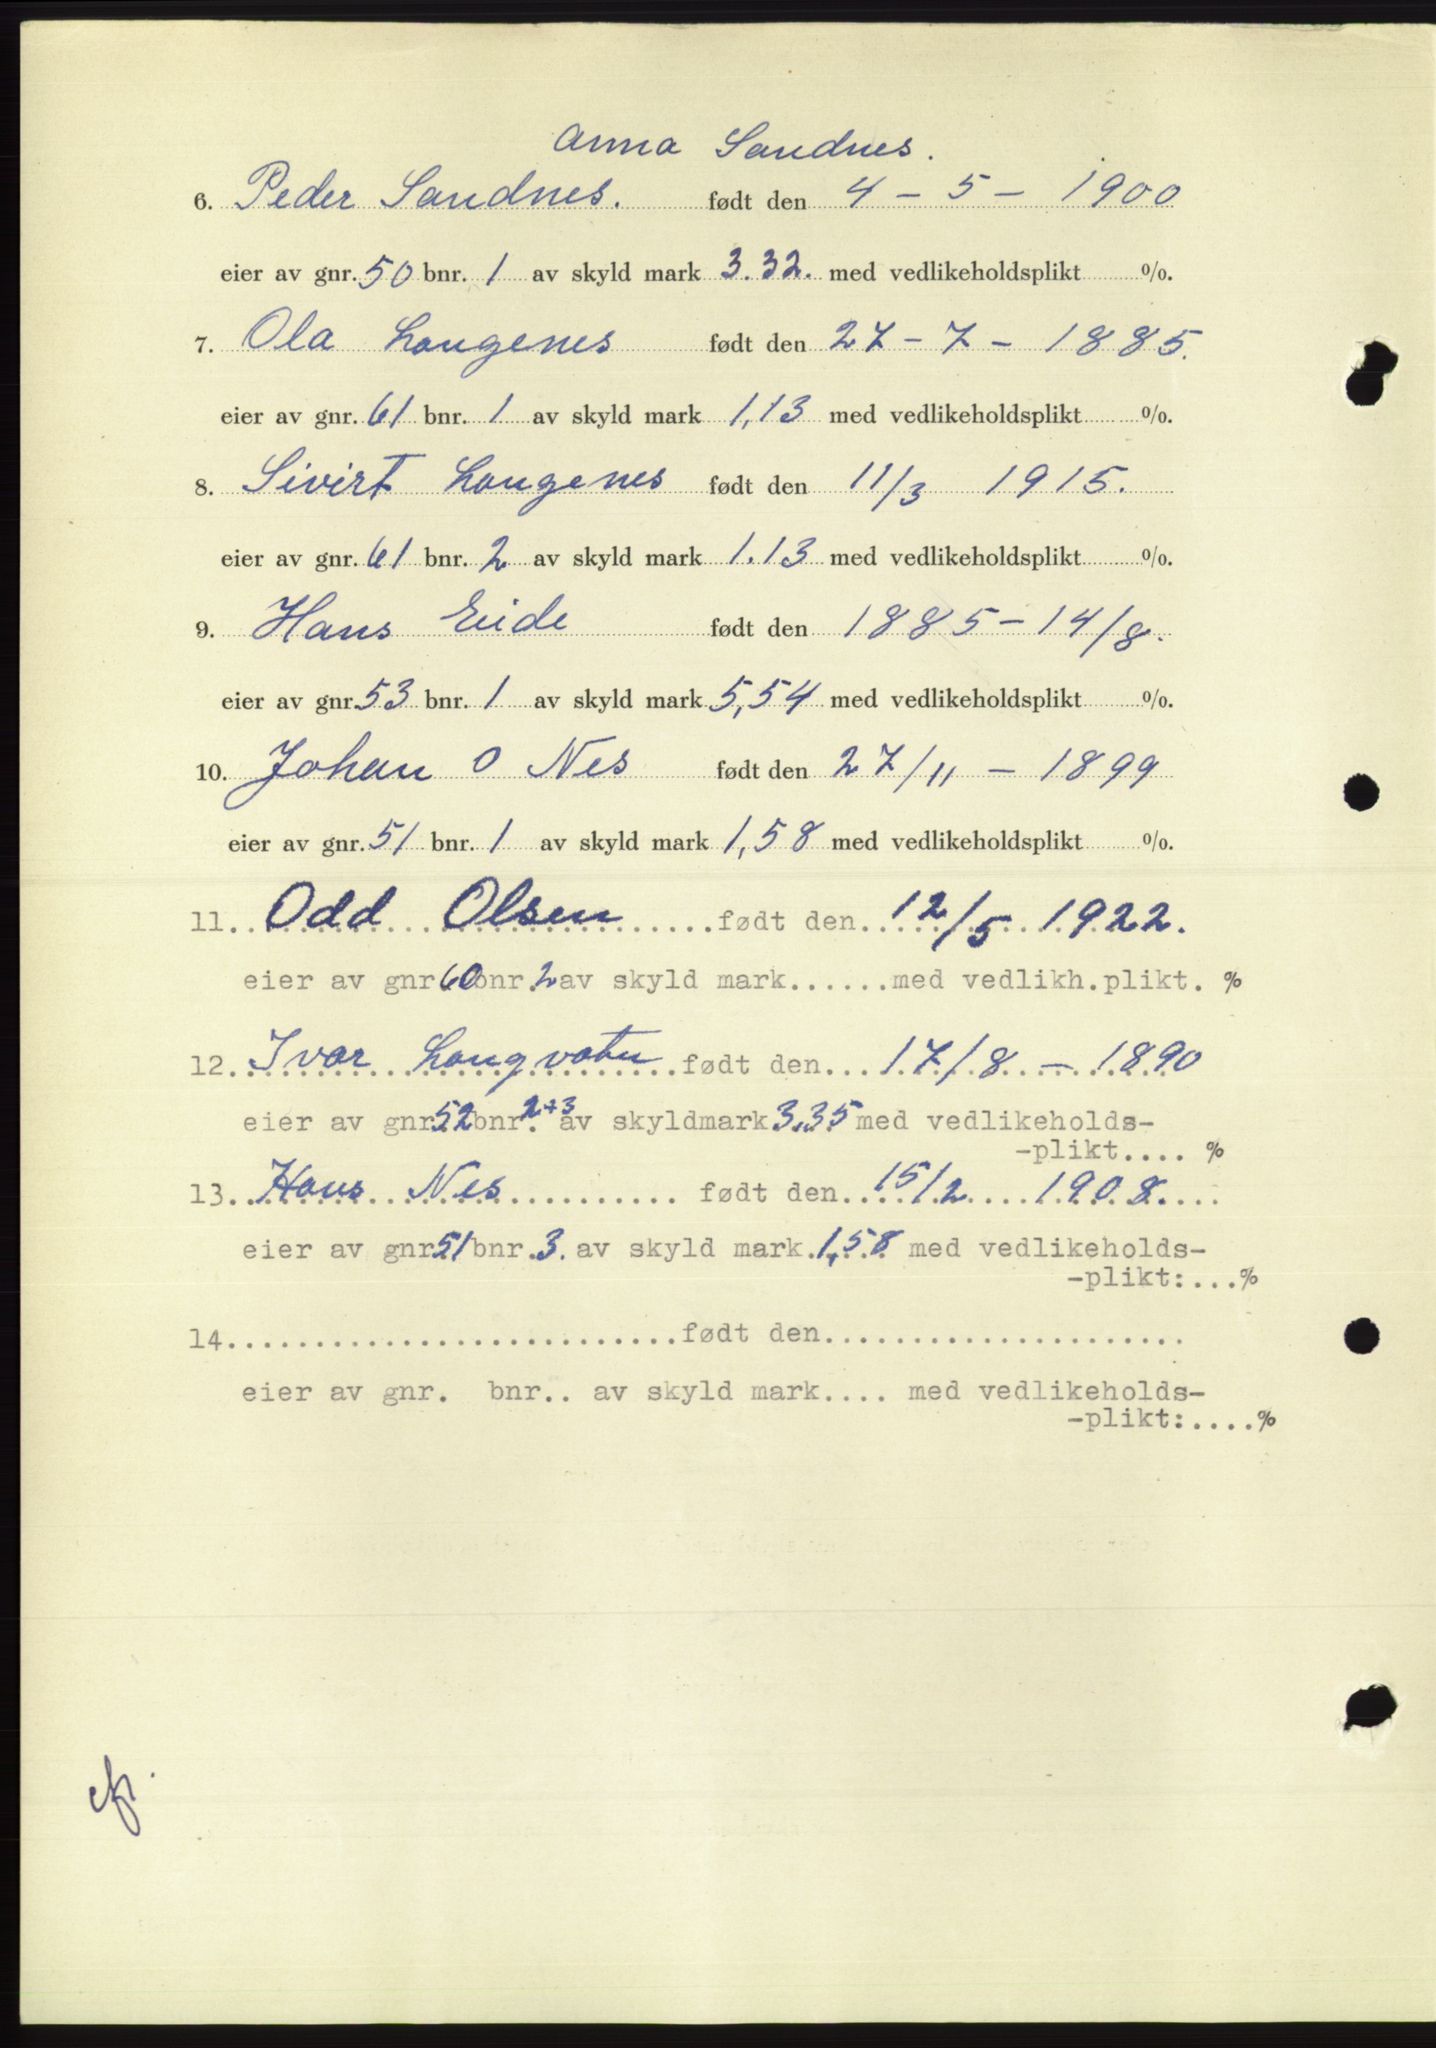 Anna Sandnes.
6. Peder Sandnes. født den 4 - 5 - 1900
eier av gnr. 50 bnr. 1 av skyld mark 3.32. med vedlikeholdsplikt %.
7. Ola Langenes født den 27 - 7 - 1885.
eier av gnr. 61 bnr. 1 av skyld mark 1,13 med vedlikeholdsplikt %.
8. Sivirt Langenes født den 11/3 1915.
eier av gnr. 61 bnr. 2 av skyld mark 1.13 med vedlikeholdsplikt %.
9. Hans Eide født den 1885 - 14/8.
eier av gnr. 53 bnr. 1 av skyld mark 5,54 med vedlikeholdsplikt %.
10. Johan O Nes født den 27/11 - 1899
eier av gnr. 51 bnr. 1 av skyld mark 1,58 med vedlikeholdsplikt %.
11. Odd Olsen født den 12/5 1922.
eier av gnr 60 bnr. 2 av skyld mark......med vedlikh.plikt. %
12. Ivar Langvatn født den... 17/8 - 1890
eier av gnr. 52 bnr. 2+3 av skyldmark 3.35 med vedlikeholds-
-plikt.... %
13. Hans Nes født den 15/2 1908
eier av gnr 51 bnr. 3. av skyld mark. 1,58 med vedlikeholds-
-plikt:...%
14..........................født den.....................
eier av gnr. bnr.. av skyld mark.... med vedlikeholds-
-plikt:....%